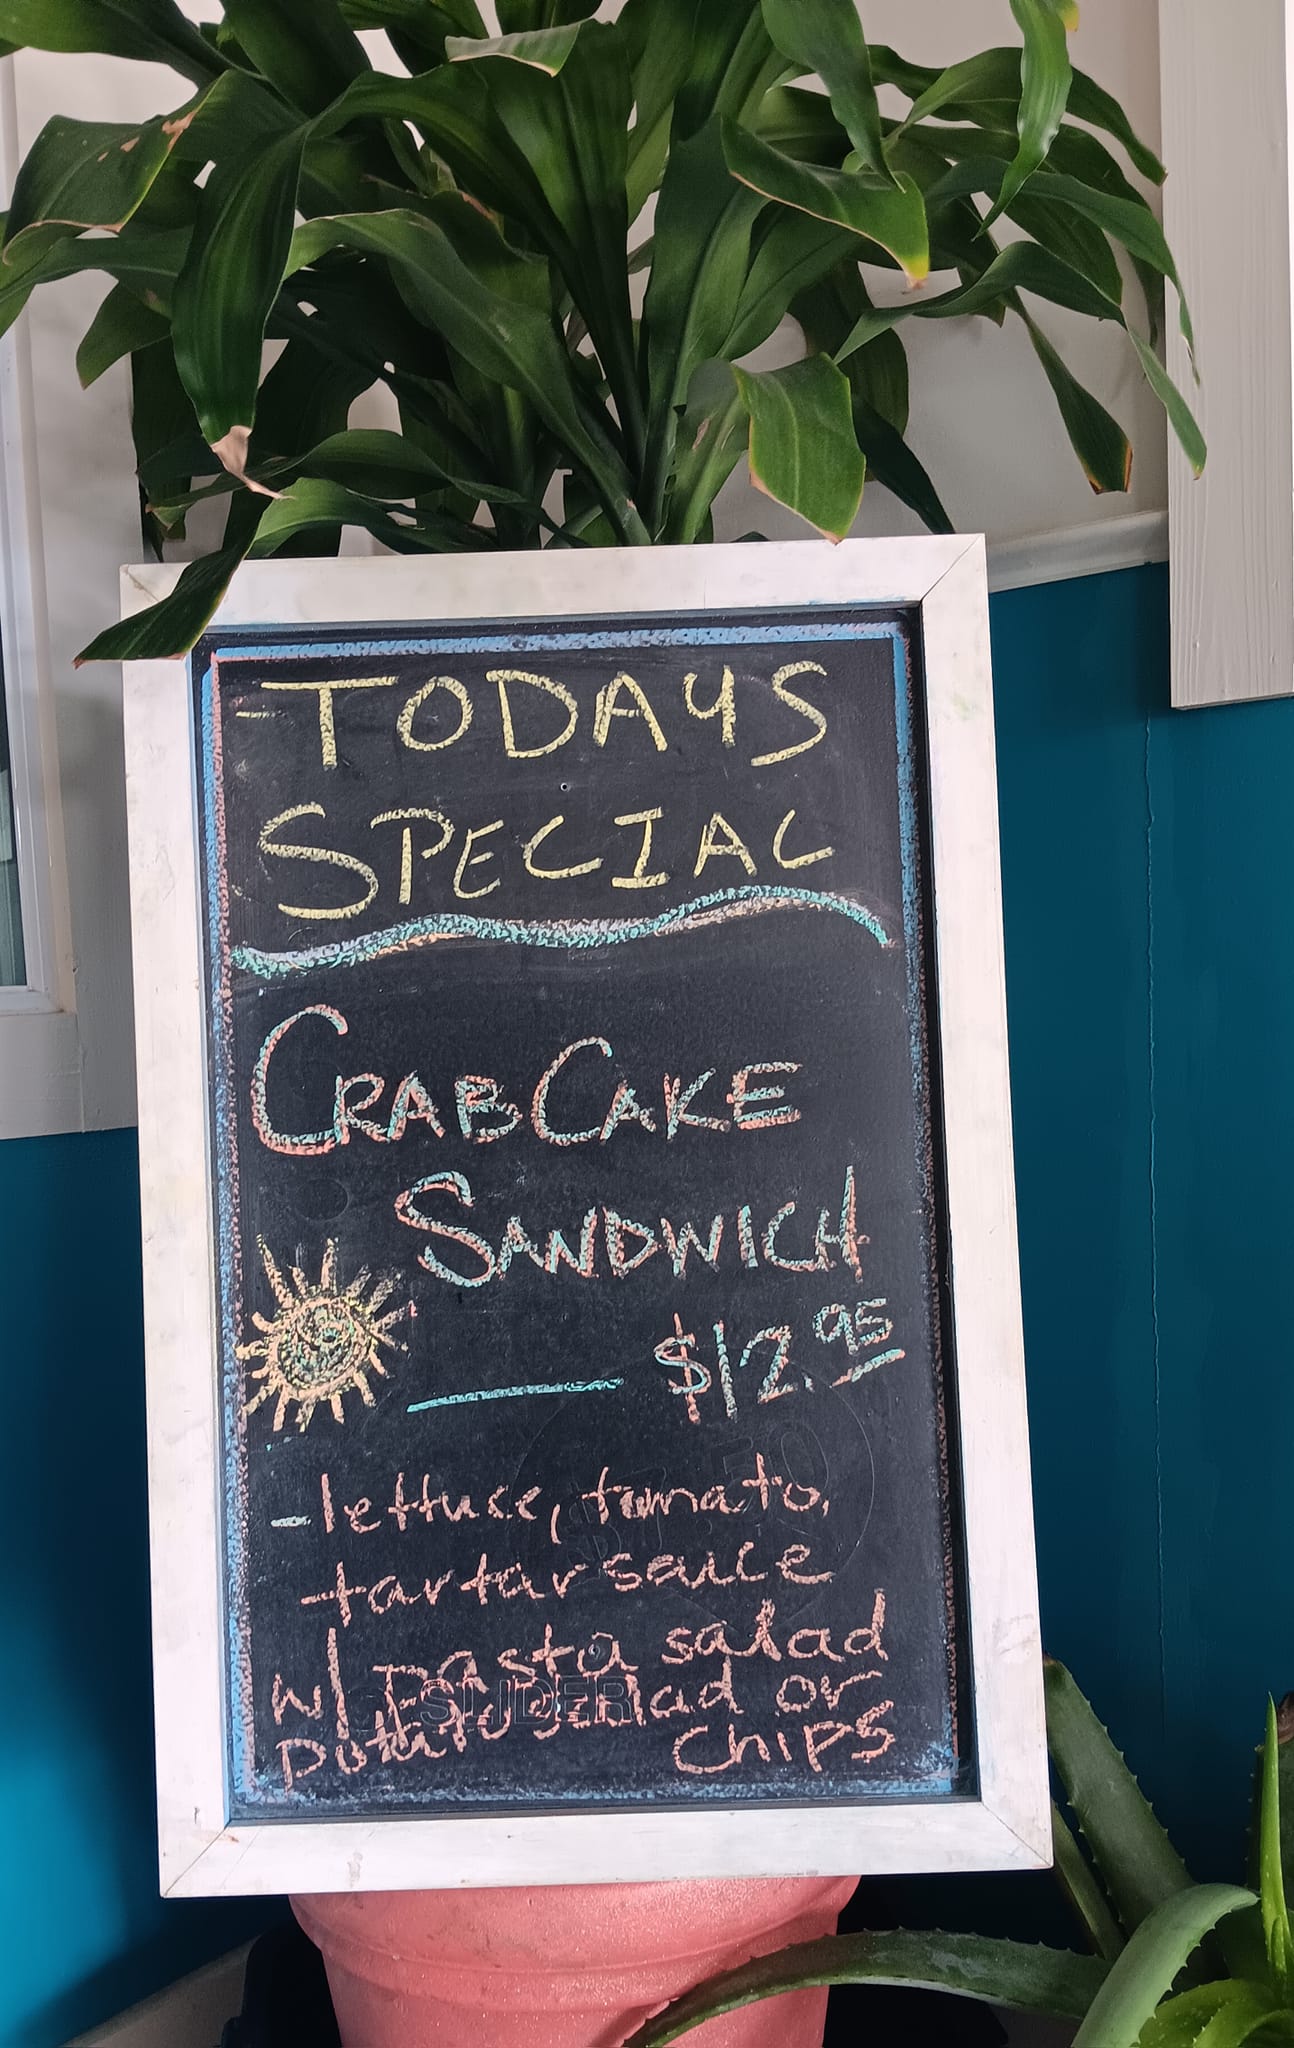 TODAYS
SPECIAL
CRAB CAKE
SANDWICH
$12.95
- lettuce, tomato,
tartar sauce
w/ pasta salad
potato salad or
CHIPS
$7.50
SLIDER